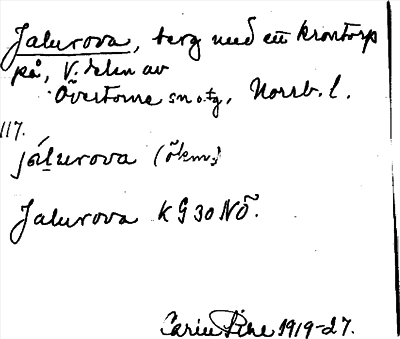 Jalurova, berg med ett krontorp
på, V. delen av
Övertorne sn o. tg, Norrb. l.
117.
jálurova (ökm.)
Jalurova KG 30 NÖ.
Carin Pihl 1919-27.